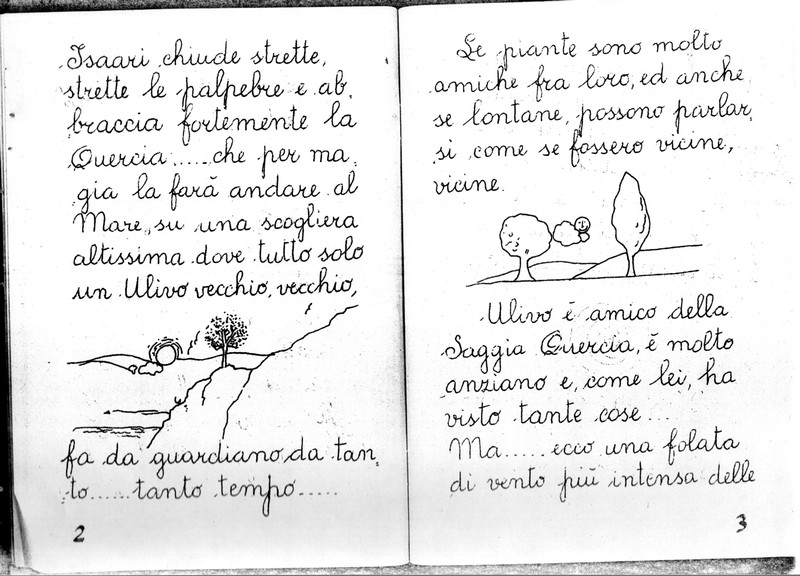 Isaari chiude strette,
strette le palpebre e ab,
braccia fortemente la
Quercia.....che per ma,
gia la fará andare al
Mare, su una scogliera
altissima dove tutto solo
un Ulivo vecchio, vecchio,
fa da guardiano, da tan,
to......tanto tempo.....
2
Le piante sono molto
amiche fra loro, ed anche
se lontane, possono parlar,
si come se fossero vicine,
vicine.
Ulivo é amico della
Saggia Quercia, é molto
anziano e, come lei, ha
visto tante cose...
Ma.....ecco una folata
di vento piú intensa delle
3